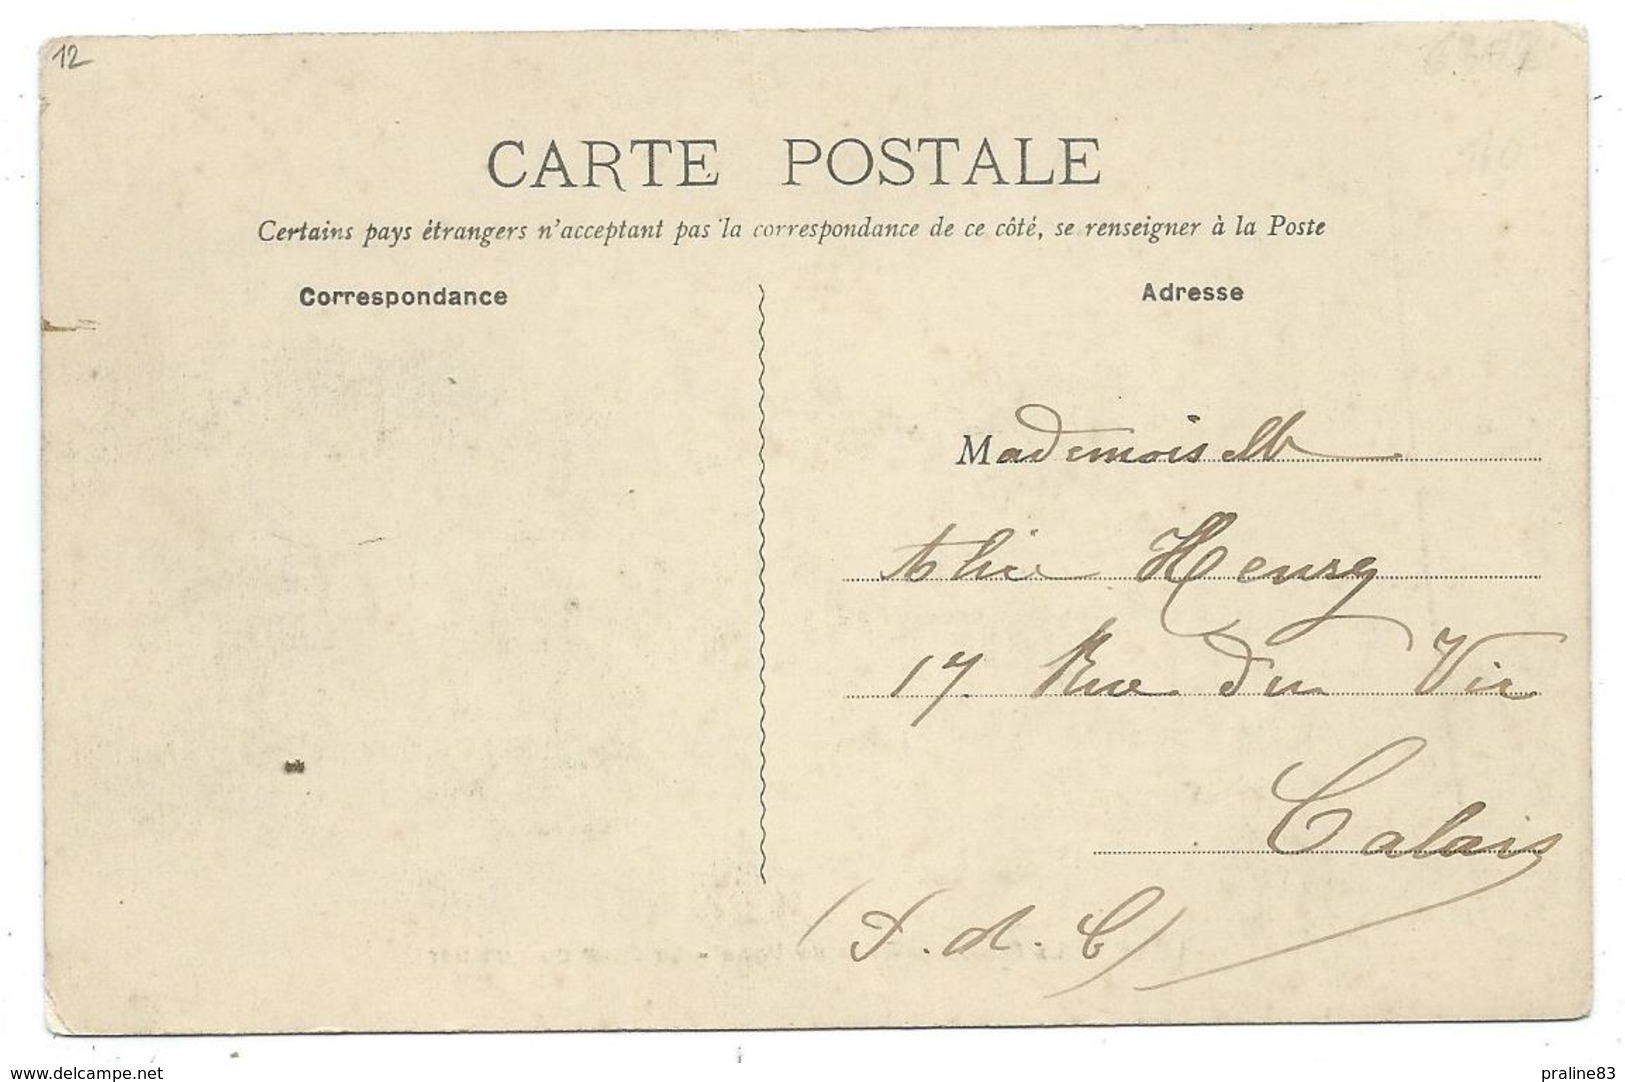 12
CARTE POSTALE
Certains pays étrangers n'acceptant pas la correspondance de ce côté, se renseigner à la Poste
Correspondance
Adresse
Mademoiselle
Alice Henry
17. Rue du Vic
Calais
(P. d. C)
www.delcampe.net
praline83